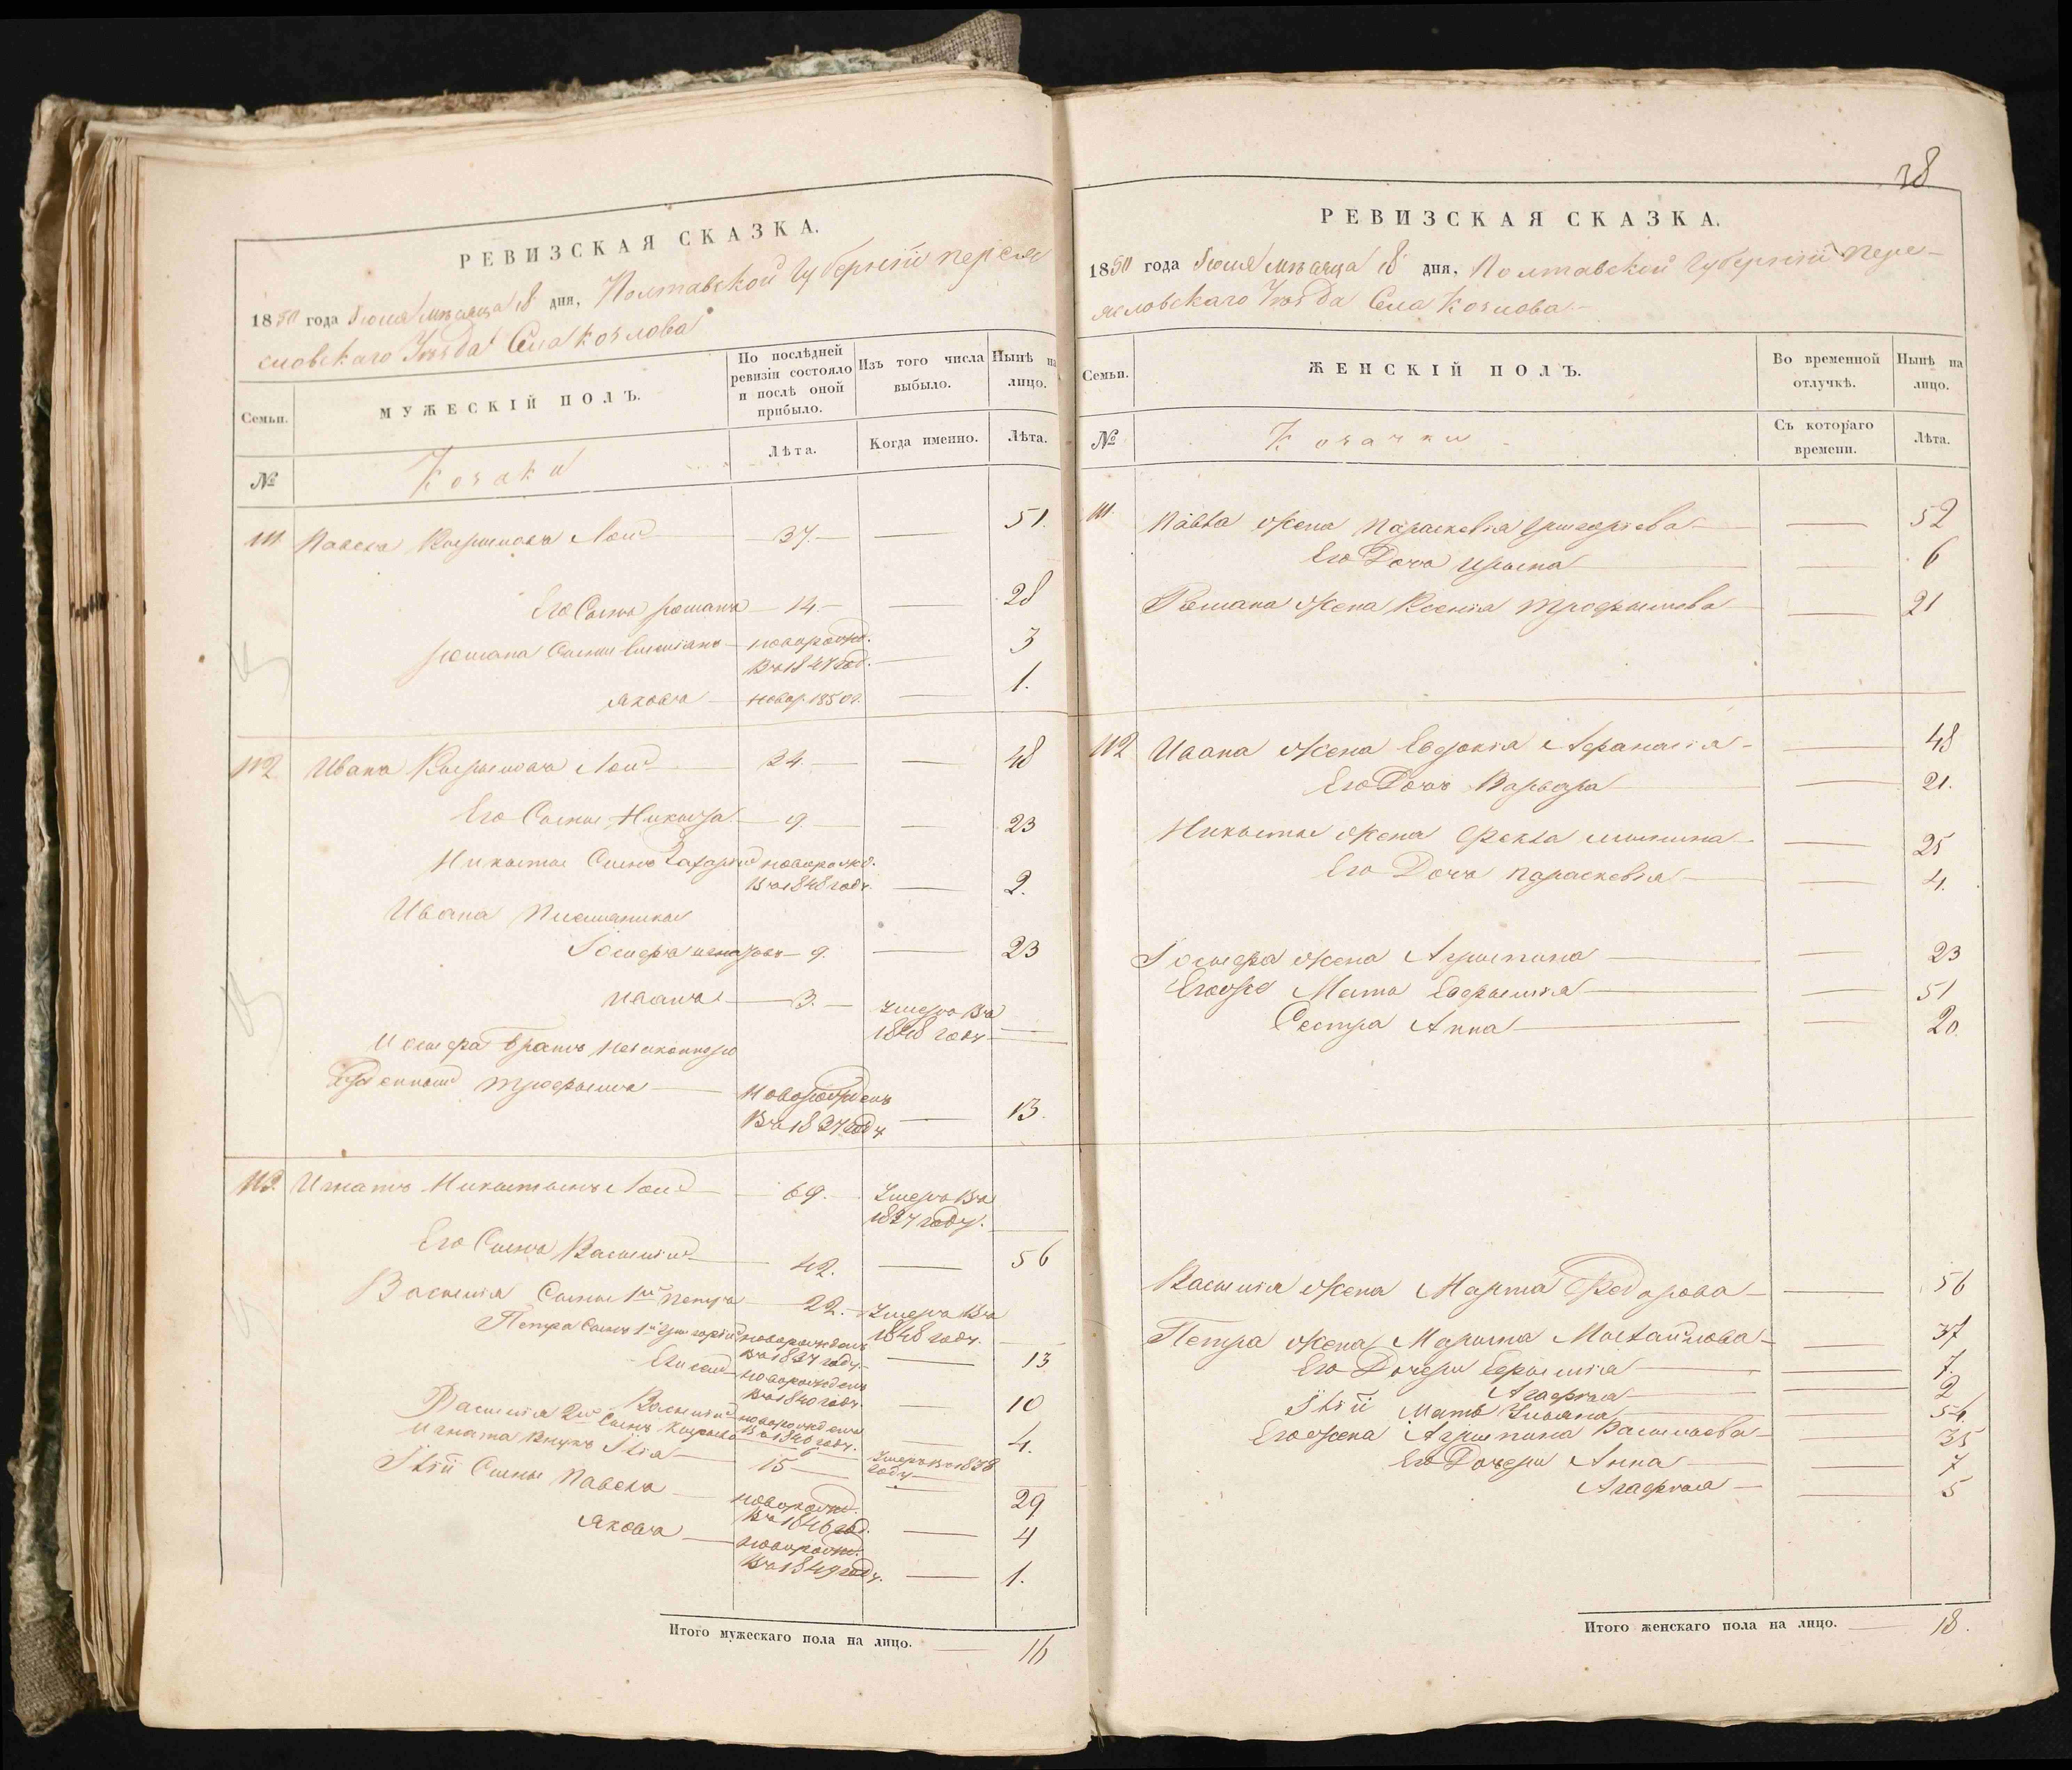 РЕВИЗСКАЯ СКАЗКА.
1850 года Июля мѣсяца 18 дня, Полтавской Губернїи Переяс
словскаго Уѣзда Села Козлова
Семьи.
МУЖЕСКІЙ ПОЛЪ.
По послѣдней ревизіи состояло и послѣ оной прибыло.
Изъ того числа выбыло.
Нынѣ на лицо.
№
Козаки
Лѣта.
Когда именно.
Лѣта.
111 Павелъ — 37. — 51.
Его Сынъ Романъ — 14. — 28
Романа Сыны — новорожд. въ 1847 год. — 3
Яковъ — новор. 1850 г. — 1.
112 Иванъ — 34. — 48
Его Сынъ Никита — 9 — 23
Никиты Сынъ Захарій новорожд. въ 1848 году. — 2.
Ивана Племянники
Іосифъ — 9. — 23
Иванъ — 3. — Умеръ въ 1848 году —
Иосифа Братъ незаконно
Трофимъ — Новорожденъ въ 1837 году — 13.
113. Игнатъ — 69. Умеръ въ 1837 году.
Его Сынъ Василій — 42. — 56
Василія Сыны 1й Петръ — 22. — Умеръ въ 1848 году. —
Петра Сынъ 1й Григорій новорожденъ въ 1837 году. — 13
новорожденъ въ 1840 году. — 10
Василій новорожденъ въ 1846 году. — 4.
Василія 2й Сынъ — 6 — Умеръ въ 1838 году —
Игната Внукъ Илія — 15 — 29
Иліи Сыны Павелъ — новорожд. въ 1846 год. — 4
Яковъ — новорожд. въ 1849 году. — 1.
Итого мужескаго пола на лицо. — 16
38
РЕВИЗСКАЯ СКАЗКА.
1850 года Июля мѣсяца 18 дня, Полтавской Губернїи Пере-
ясловскаго Уѣзда Села Козлова
Семьи.
ЖЕНСКІЙ ПОЛЪ.
Во временной отлучкѣ.
Нынѣ на лицо.
№
Козачки
Съ котораго времени.
Лѣта.
111. Павла жена Параскевія Григоріева — 52
Его Дочь Ирина — 6
Романа жена Ксенія Трофимова — 21
112 Ивана жена Евдокія Афанасія — 48
Его Дочь Варвара — 21.
Никиты жена Фекла — 25
Его Дочь Параскевія — 4.
Іосифа жена Агрипина — 23
Его же Мать Евфимія — 51
Сестра Анна — 20.
Василія жена Марта Федорова — 56
Петра жена Марина Михайлова — 37
Его Дочери Ефимія — 7
Агафія — 2
Иліи Мать Уліана — 54.
Его жена Агрипина Васильева — 35
Его Дочери Анна — 7
Агафія — 5
Итого женскаго пола на лицо. — 18.